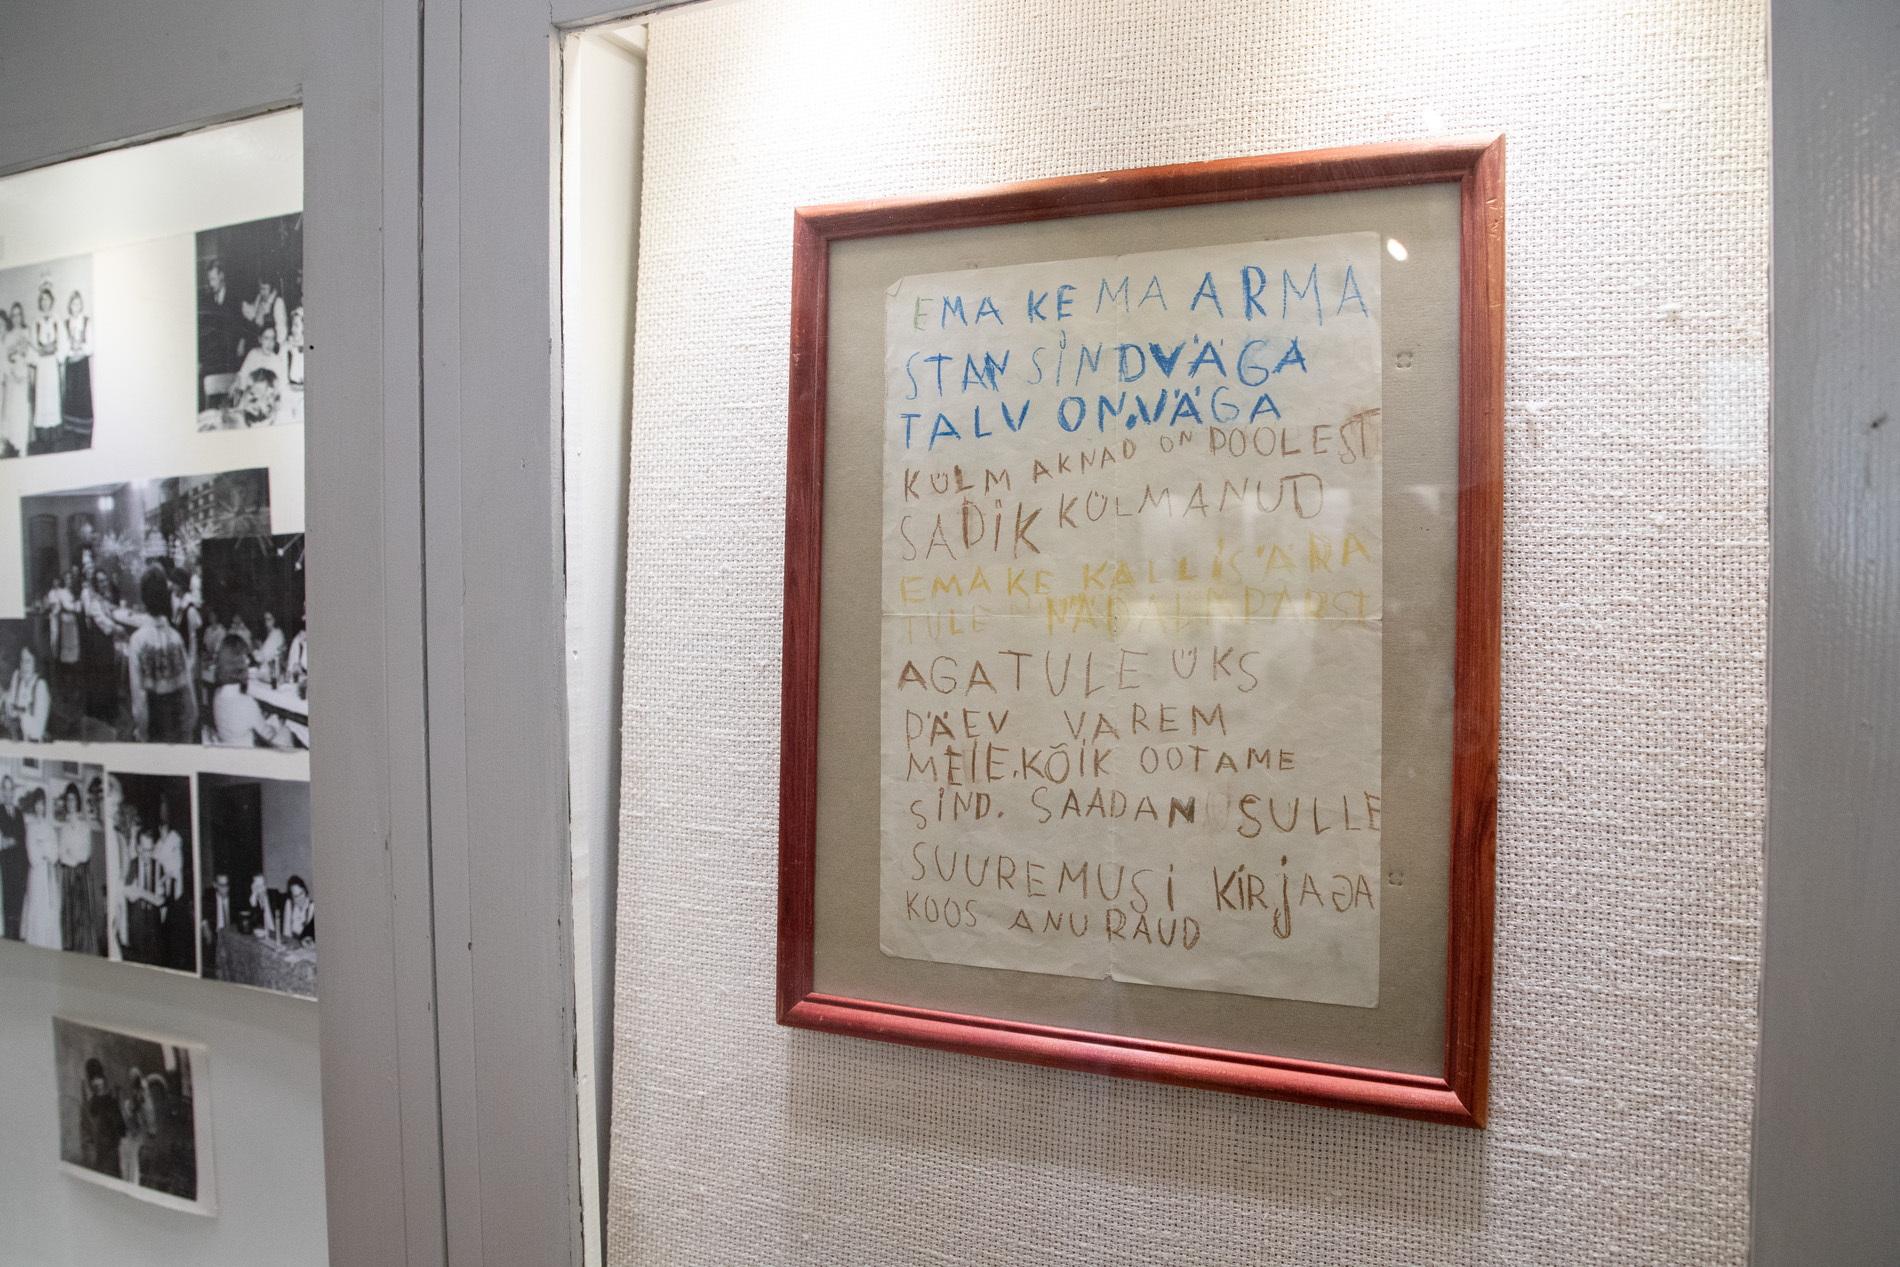 EMAKE MA ARMA
STAN SIND VÄGA
TALV ON VÄGA
KÜLM AKNAD ON POOLEST
SADIK KÜLMANUD
EMAKE KALLIS ÄRA
TULE NÄDALA PÄRAST
AGA TULE ÜKS
PÄEV VAREM
MEIE KÕIK OOTAME
SIND. SAADAN SULLE
SUURE MUSI KIRJAGA
KOOS ANU RAUD